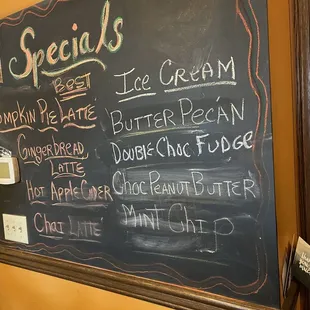 Specials
BEST
PUMPKIN PIE LATTE
GINGERBREAD
LATTE
HOT APPLE CIDER
CHAI LATTE
ICE CREAM
BUTTER PECAN
DOUBLE CHOC FUDGE
CHOC PEANUT BUTTER
MINT CHIP